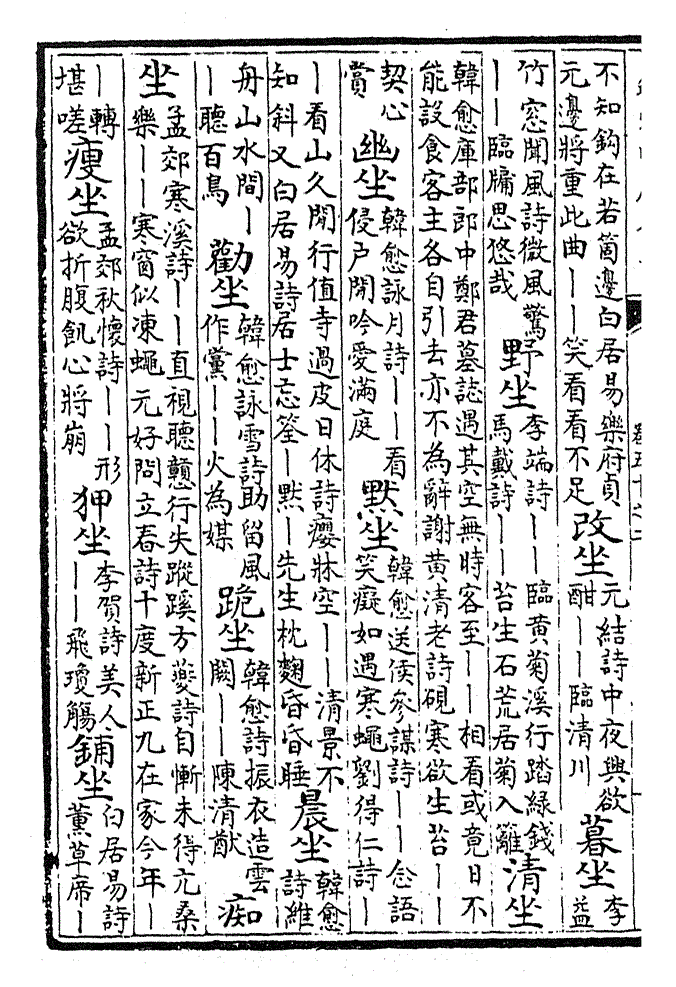 不知鈎在若箇邊白居易樂府貞
元邊將重此曲｜｜笑看看不足
改坐
元結詩中夜興欲
酣｜｜臨清川
暮坐
李
益
竹窓聞風詩微風驚
｜｜臨牖思悠哉
野坐
李端詩｜｜臨黄菊溪行踏緑錢
馬戴詩｜｜苔生石荒居菊入籬
清坐
韓愈庫部郎中鄭君墓誌遇其空無時客至｜｜相看或竟日不
能設食客主各自引去亦不為辭謝黄清老詩硯寒欲生苔｜｜
契心
賞
幽坐
韓愈詠月詩｜｜看
侵户開吟愛滿庭
默坐
韓愈送侯參謀詩｜｜念語
笑癡如遇寒蠅劉得仁詩｜
｜看山久閒行值寺過皮日休詩癭牀空｜｜清景不
知斜又白居易詩居士忘筌｜默｜先生枕麴昏昏睡
晨坐
韓愈
詩維
舟山水間｜
｜聽百鳥
勸坐
韓愈詠雪詩助留風
作黨｜｜火為媒
跪坐
韓愈詩振衣造雲
闕｜｜陳清猷
痴
坐
孟郊寒溪詩｜｜直視聽戇行失蹤蹊方夔詩自慚未得亢桑
樂｜｜寒窗似凍蠅元好問立春詩十度新正九在家今年｜
｜轉
堪嗟
瘦坐
孟郊秋懷詩｜｜形
欲折腹飢心將崩
狎坐
李賀詩美人
｜｜飛瓊觴
鋪坐
白居易詩
薫草席｜